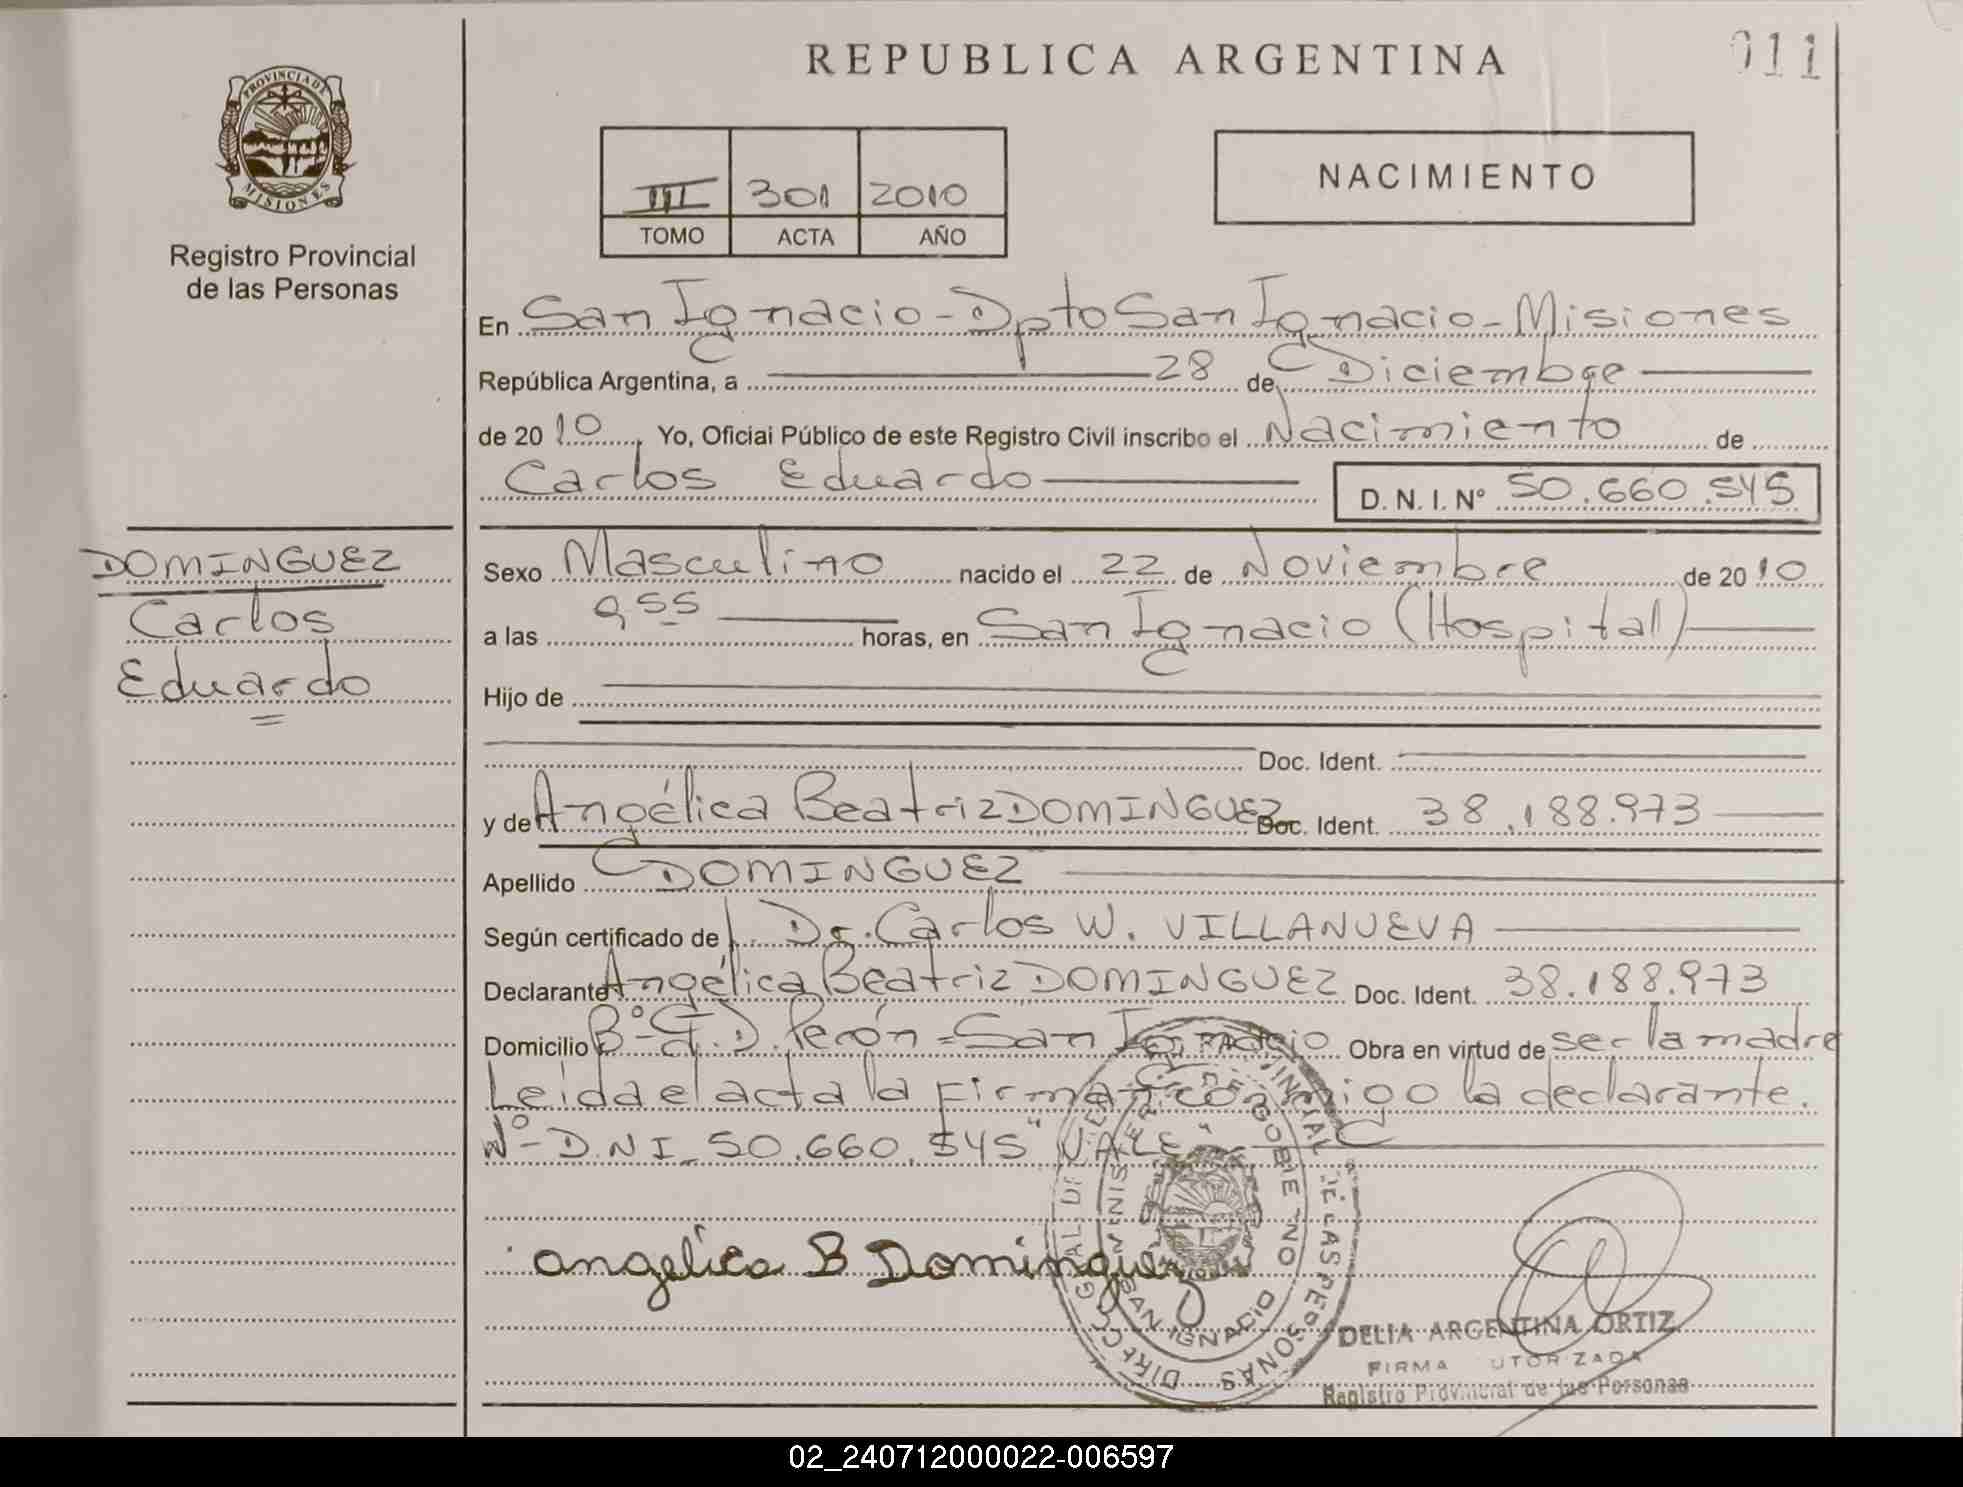 REPUBLICA ARGENTINA
011
PROVINCIA DE MISIONES
Registro Provincial
de las Personas
III 301 2010
TOMO ACTA AÑO
NACIMIENTO
En San Ignacio - Dpto San Ignacio - Misiones
República Argentina, a 28 de Diciembre
de 2010, Yo, Oficial Público de este Registro Civil inscribo el Nacimiento de
Carlos Eduardo D. N. I. Nº 50.660.545
DOMINGUEZ
Carlos
Eduardo
Sexo Masculino nacido el 22 de Noviembre de 2010
a las 9 55 horas, en San Ignacio (Hospital)
Hijo de
Doc. Ident.
y de Angélica Beatriz DOMINGUEZ Doc. Ident. 38.188.973
Apellido DOMINGUEZ
Según certificado de Dr. Carlos W. VILLANUEVA
Declarante Angélica Beatriz DOMINGUEZ Doc. Ident. 38.188.973
Domicilio Bº - J.D. Perón = San Ignacio Obra en virtud de ser la madre
Leida el acta la firman conmigo la declarante.
Nº - D.N I_ 50.660.545 "VALE"
angelica B Dominguez
DIRECCION GRAL DE REG. PROVINCIAL DE LAS PERSONAS
MINISTERIO DE GOBIERNO
SAN IGNACIO
DELIA ARGENTINA ORTIZ
FIRMA AUTORIZADA
Registro Provincial de las Personas
02_240712000022-006597